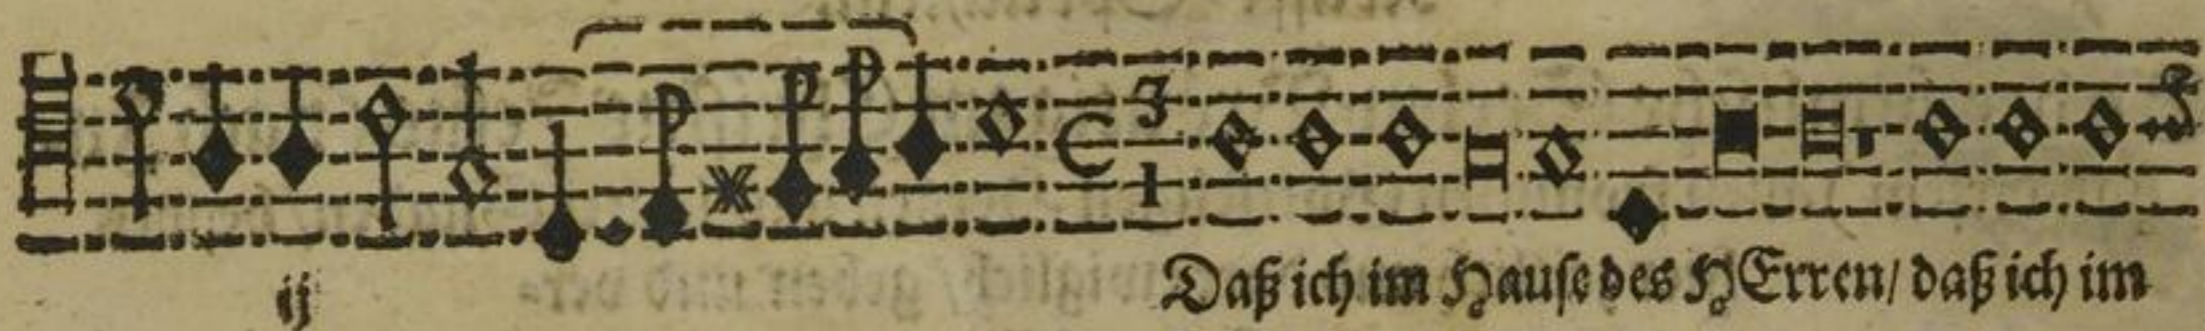 ij Daß ich im Hause des HErren/ daß ich im